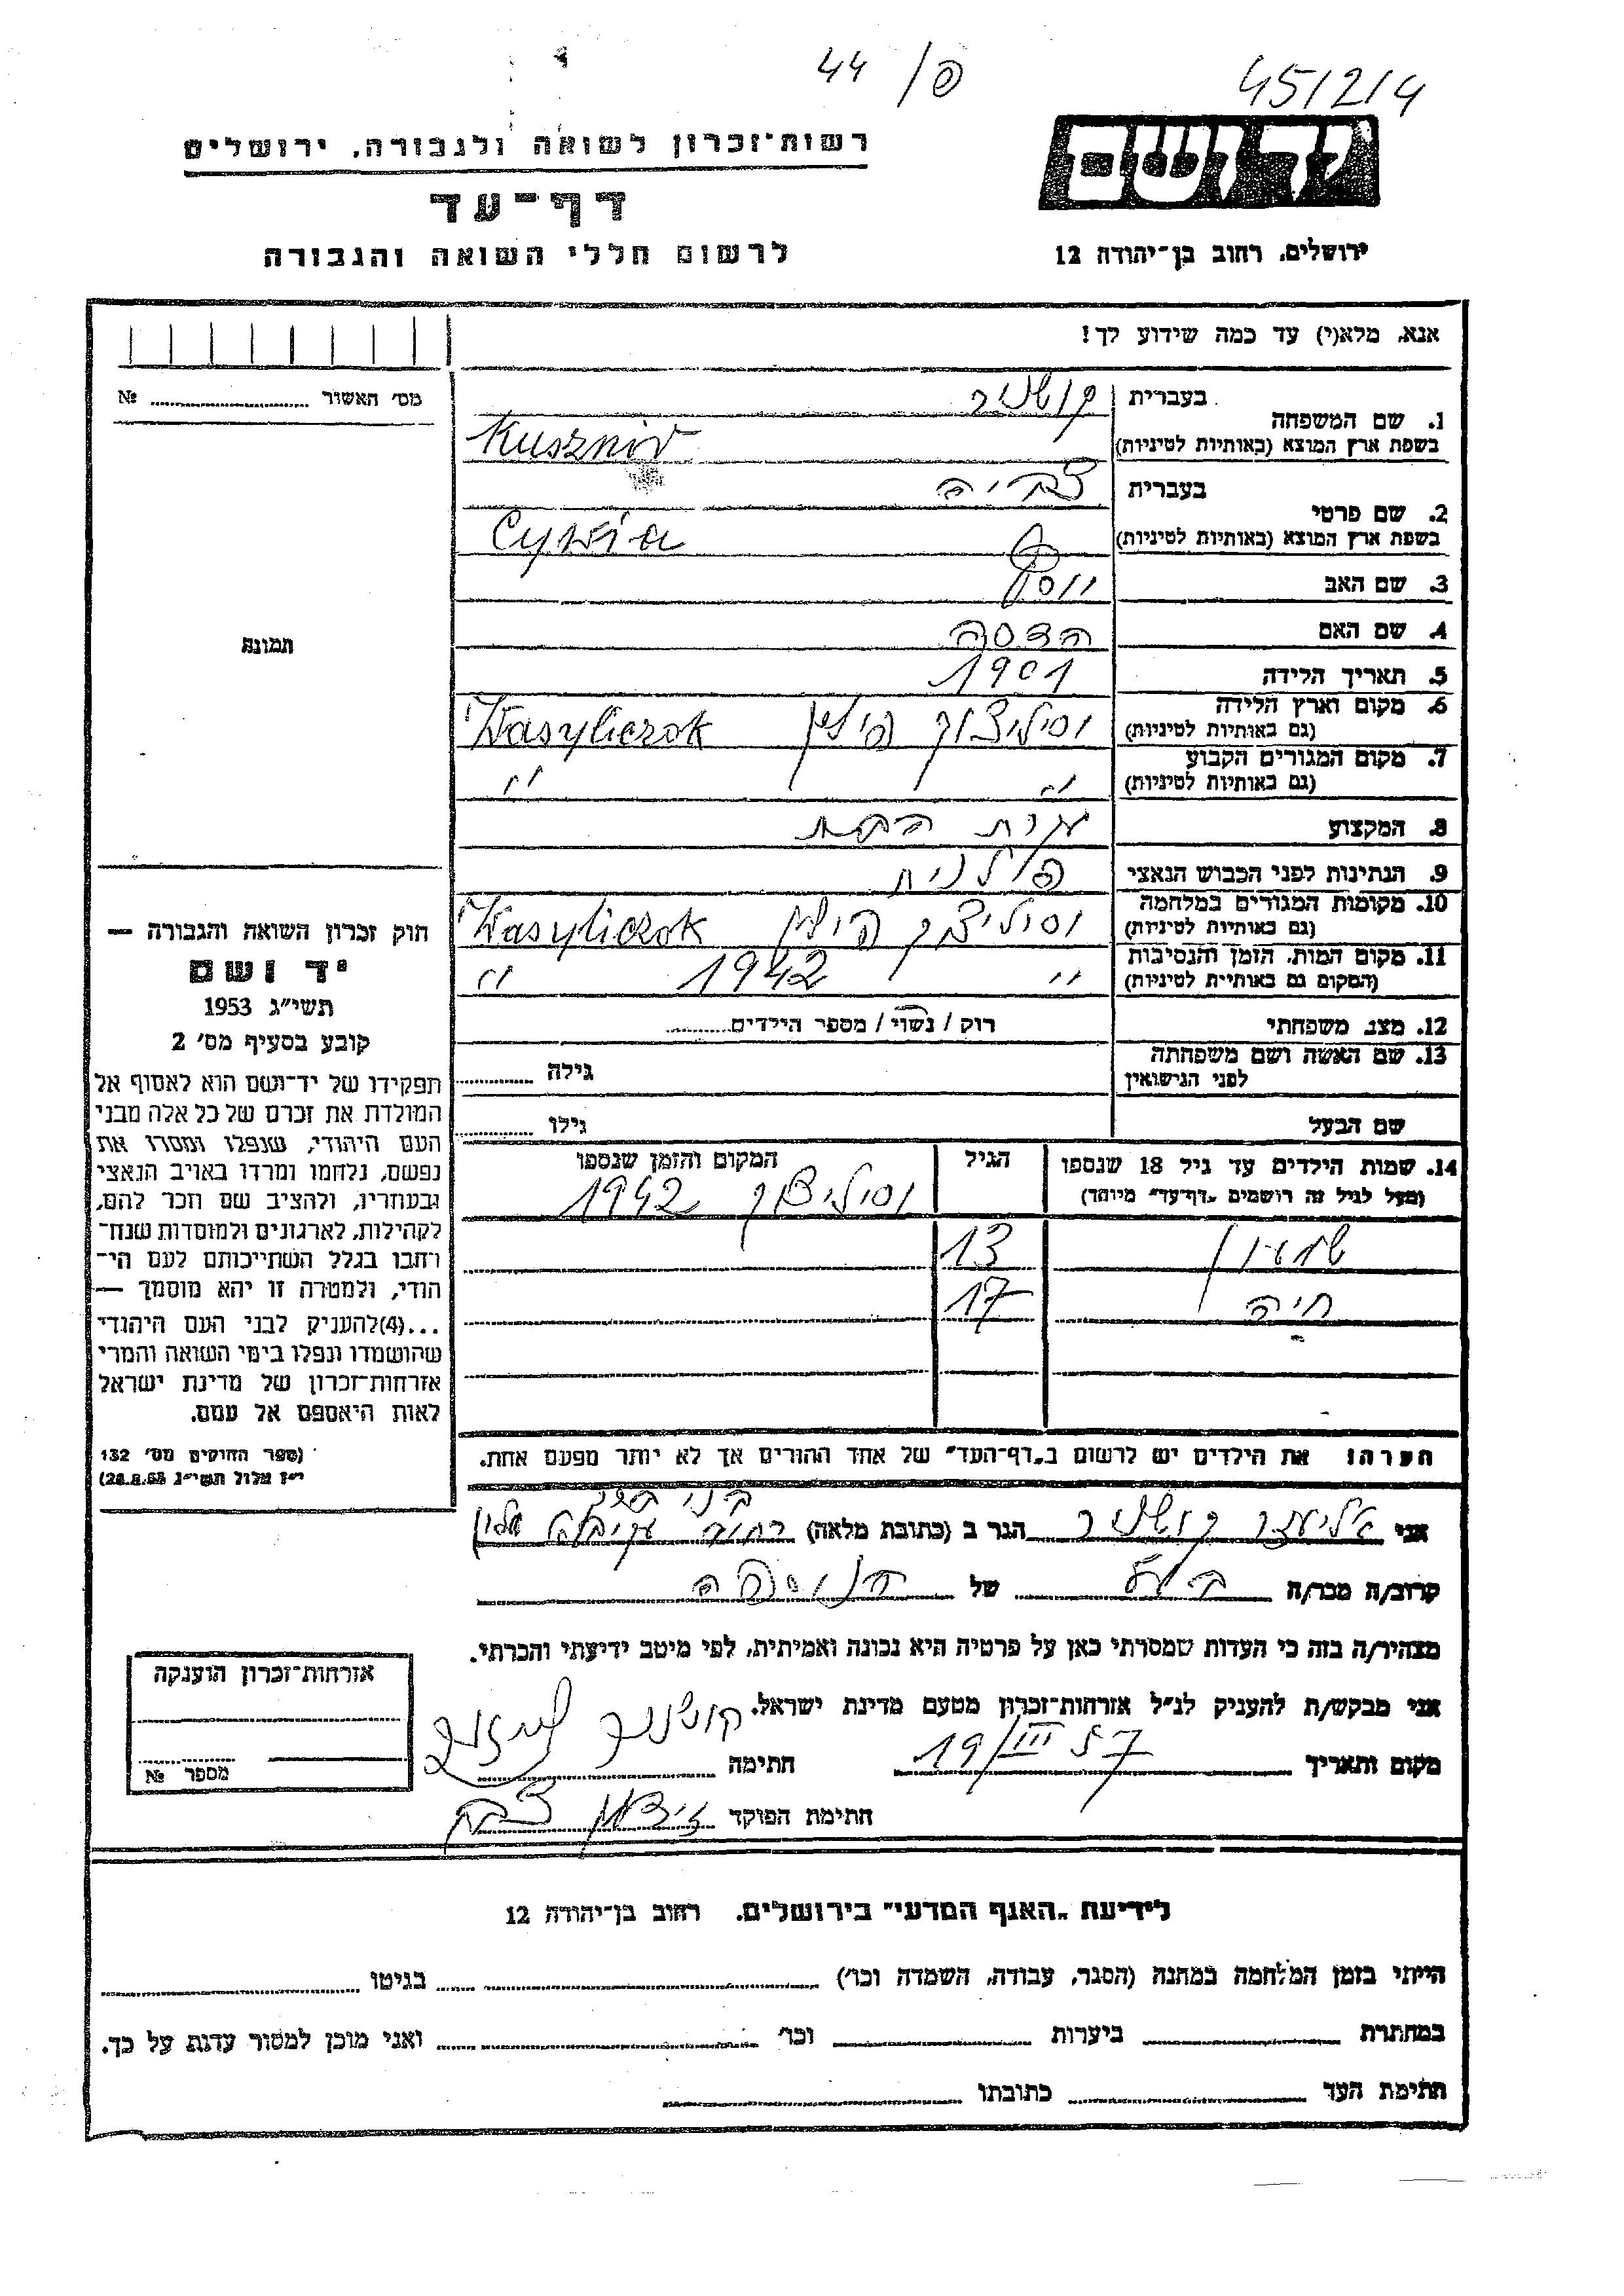 44 /פ
45/2/4
ידושם
רשות־זכרון לשואה ולגבורה, ירושלים
דף־עד
לרשום חללי השואה והגבורה
ירושלים, רחוב בן־יהודה 12
אנא, מלא(י) עד כמה שידוע לך!
מס׳ האשור № ........
תמונה
1. שם המשפחה
בעברית קושניר
בשפת ארץ המוצא (באותיות לטיניות) Kusznir
2. שם פרטי
בעברית צביה
בשפת ארץ המוצא (באותיות לטיניות) Cywia
3. שם האב יוסף
4. שם האם הדסה
5. תאריך הלידה 1901
6. מקום וארץ הלידה וסיליצוק פולין Wasyliczok
(גם באותיות לטיניות)
7. מקום המגורים הקבוע " "
(גם באותיות לטיניות)
8. המקצוע עקרת הבית
9. הנתינות לפני הכבוש הנאצי פולנית
10. מקומות המגורים במלחמה וסיליצוק פולין Wasyliczok
(גם באותיות לטיניות)
11. מקום המות, הזמן והנסיבות " 1942 "
(המקום גם באותיות לטיניות)
12. מצב משפחתי רוק / נשוי / מספר הילדים........
13. שם האשה ושם משפחתה
לפני הנישואין גילה ........
שם הבעל גילו ........
14. שמות הילדים עד גיל 18 שנספו הגיל המקום והזמן שנספו
(מעל לגיל זה רושמים „דף־עד״ מיוחד) וסיליצוק 1942
שמעון 13
חיה 17
חוק זכרון השואה והגבורה —
יד ושם
תשי״ג 1953
קובע בסעיף מס׳ 2
תפקידו של יד־ושם הוא לאסוף אל
המולדת את זכרם של כל אלה מבני
העם היהודי, שנפלו ומסרו את
נפשם, נלחמו ומרדו באויב הנאצי
ובעוזריו, ולהציב שם וזכר להם,
לקהילות, לארגונים ולמוסדות שנח־
רחבו בגלל השתייכותם לעם הי־
הודי, ולמטרה זו יהא מוסמך —
...(4)להעניק לבני העם היהודי
שהושמדו ונפלו בימי השואה והמרי
אזרחות־זכרון של מדינת ישראל
לאות היאספם אל עמם.
(ספר החוקים מס׳ 132
י״ז אלול תשי״ג 28.8.53)
הערה: את הילדים יש לרשום ב„דף־העד״ של אחד ההורים אך לא יותר מפעם אחת.
אני אליעזר קושניר הגר ב (כתובת מלאה) בני ברק רחוב
קרוב/ה מכר/ה של
מצהיר/ה בזה כי העדות שמסרתי כאן על פרטיה היא נכונה ואמיתית, לפי מיטב ידיעתי והכרתי.
אני מבקש/ת להעניק לנ״ל אזרחות־זכרון מטעם מדינת ישראל.
מקום ותאריך 19/III 57 חתימה קושניר אליעזר
חתימת הפוקד
אזרחות־זכרון הוענקה
מספר №
לידיעת „האגף המדעי״ בירושלים, רחוב בן־יהודה 12
הייתי בזמן המלחמה במחנה (הסגר, עבודה, השמדה וכו׳) ........ בגיטו ........
במחתרת ........ ביערות ........ וכו׳ ........ ואני מוכן למסור עדות על כך.
חתימת העד ........ כתובתו ........